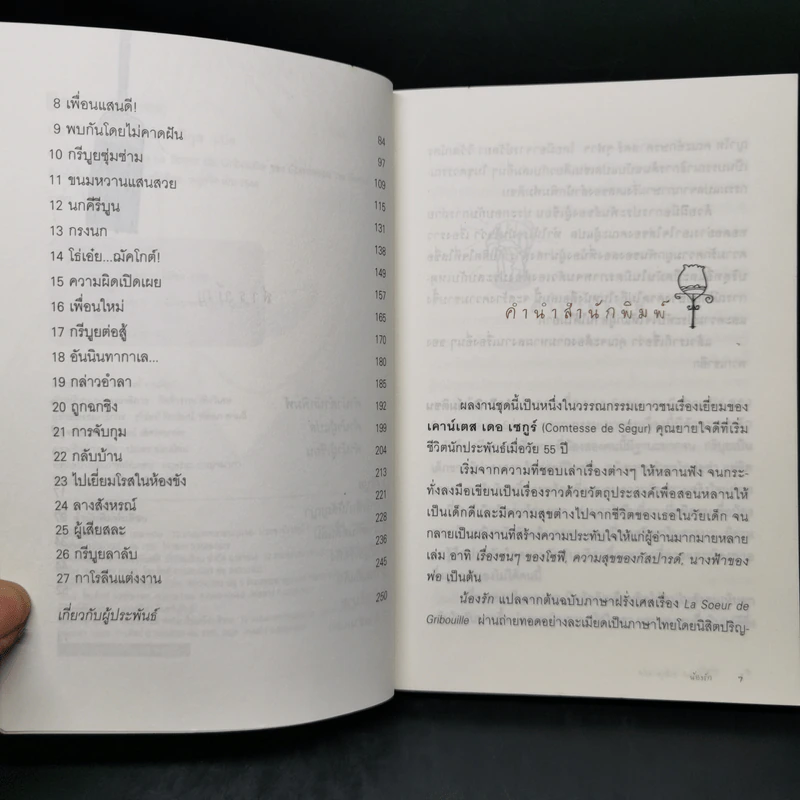 8 เพื่อนแสนดี! 84
9 พบกันโดยไม่คาดฝัน 97
10 กรีบูยซุ่มซ่าม 109
11 ขนมหวานแสนสวย 115
12 นกคีรีบูน 131
13 กรงนก 138
14 โธ่เอ๋ย...ฌัคโกต์! 149
15 ความผิดเปิดเผย 157
16 เพื่อนใหม่ 165
17 กรีบูยต่อสู้ 170
18 อันนินทากาเล... 180
19 กล่าวอำลา 185
20 ถูกฉกชิง 192
21 การจับกุม 199
22 กลับบ้าน 204
23 ไปเยี่ยมโรสในห้องขัง 213
24 ลางสังหรณ์ 221
25 ผู้เสียสละ 228
26 กรีบูยลาลับ 236
27 กาโรลีนแต่งงาน 245
เกี่ยวกับผู้ประพันธ์ 250
คำนำสำนักพิมพ์
ผลงานชุดนี้เป็นหนึ่งในวรรณกรรมเยาวชนเรื่องเยี่ยมของ
เคาน์เตส เดอ เซกูร์ (Comtesse de Ségur) คุณยายใจดีที่เริ่ม
ชีวิตนักประพันธ์เมื่อวัย 55 ปี
เริ่มจากความที่ชอบเล่าเรื่องต่างๆ ให้หลานฟัง จนกระ-
ทั่งลงมือเขียนเป็นเรื่องราวด้วยวัตถุประสงค์เพื่อสอนหลานให้
เป็นเด็กดีและมีความสุขต่างไปจากชีวิตของเธอในวัยเด็ก จน
กลายเป็นผลงานที่สร้างความประทับใจให้แก่ผู้อ่านมากมายหลาย
เล่ม อาทิ เรื่องซนๆ ของโซฟี, ความสุขของกัสปารด์, นางฟ้าของ
พ่อ เป็นต้น
น้องรัก แปลจากต้นฉบับภาษาฝรั่งเศสเรื่อง La Soeur de
Gribouille ผ่านถ่ายทอดอย่างละเมียดเป็นภาษาไทยโดยนิสิตปริญ-
น้องรัก 7